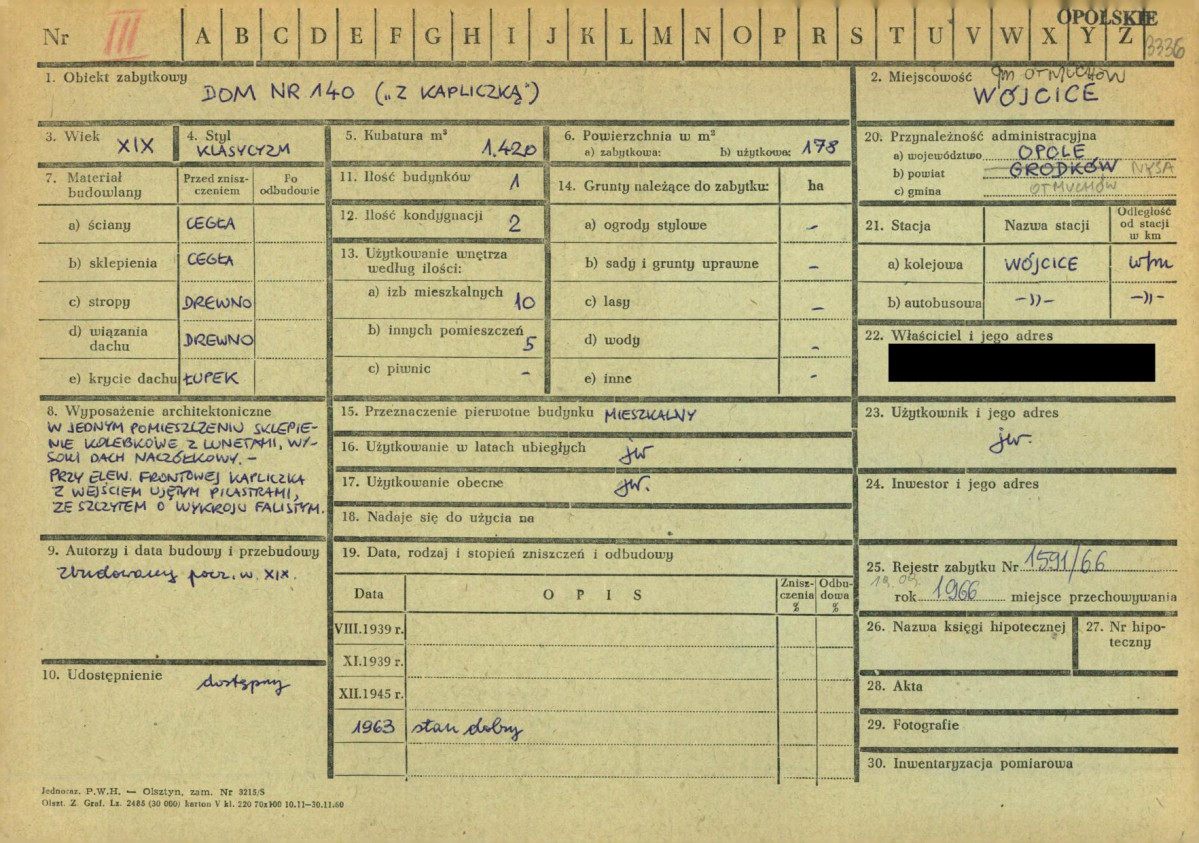 OPOLSKIE
Nr III A B C D E F G H I J K L M N O P R S T U V W X Y Z 3336
1. Obiekt zabytkowy
DOM NR 140 („Z KAPLICZKĄ")
2. Miejscowość gm OTMUCHÓW
WÓJCICE
3. Wiek XIX
4. Styl
KLASYCYZM
5. Kubatura m³
1.420
6. Powierzchnia w m²
a) zabytkowa: b) użytkowa: 178
20. Przynależność administracyjna
a) województwo OPOLE
b) powiat GRODKÓW NYSA
c) gmina OTMUCHÓW
7. Materiał budowlany
Przed zniszczeniem
Po odbudowie
a) ściany CEGŁA
b) sklepienia CEGŁA
c) stropy DREWNO
d) wiązania dachu DREWNO
e) krycie dachu ŁUPEK
11. Ilość budynków 1
12. Ilość kondygnacji 2
13. Użytkowanie wnętrza
według ilości:
a) izb mieszkalnych 10
b) innych pomieszczeń 5
c) piwnic -
14. Grunty należące do zabytku: ha
a) ogrody stylowe -
b) sady i grunty uprawne -
c) lasy -
d) wody -
e) inne -
21. Stacja Nazwa stacji Odległość od stacji w km
a) kolejowa WÓJCICE w/m
b) autobusowa -))- -))-
22. Właściciel i jego adres
8. Wyposażenie architektoniczne
W JEDNYM POMIESZCZENIU SKLEPIE-
NIE KOLEBKOWE Z LUNETAMI, WY-
SOKI DACH NACZÓŁKOWY. -
PRZY ELEW. FRONTOWEJ KAPLICZKA
Z WEJŚCIEM UJĘTYM PILASTRAMI,
ZE SZCZYTEM O WYKROJU FALISTYM.
15. Przeznaczenie pierwotne budynku MIESZKALNY
16. Użytkowanie w latach ubiegłych jw
17. Użytkowanie obecne jw.
18. Nadaje się do użycia na
23. Użytkownik i jego adres
jw.
24. Inwestor i jego adres
9. Autorzy i data budowy i przebudowy
Zbudowany pocz. w. XIX.
19. Data, rodzaj i stopień zniszczeń i odbudowy
Data OPIS Zniszczenia % Odbudowa %
VIII.1939 r.
XI.1939 r.
XII.1945 r.
1963 stan dobry
25. Rejestr zabytku Nr 1591/66
19.09.
rok 1966 miejsce przechowywania
26. Nazwa księgi hipotecznej
27. Nr hipo-
teczny
10. Udostępnienie
dostępny
28. Akta
29. Fotografie
30. Inwentaryzacja pomiarowa
Jednoraz. P.W.H. — Olsztyn, zam. Nr 3215/S
Olszt. Z. Graf. Lz. 2485 (30 000) karton V kl. 220 70x100 10.11—30.11.60